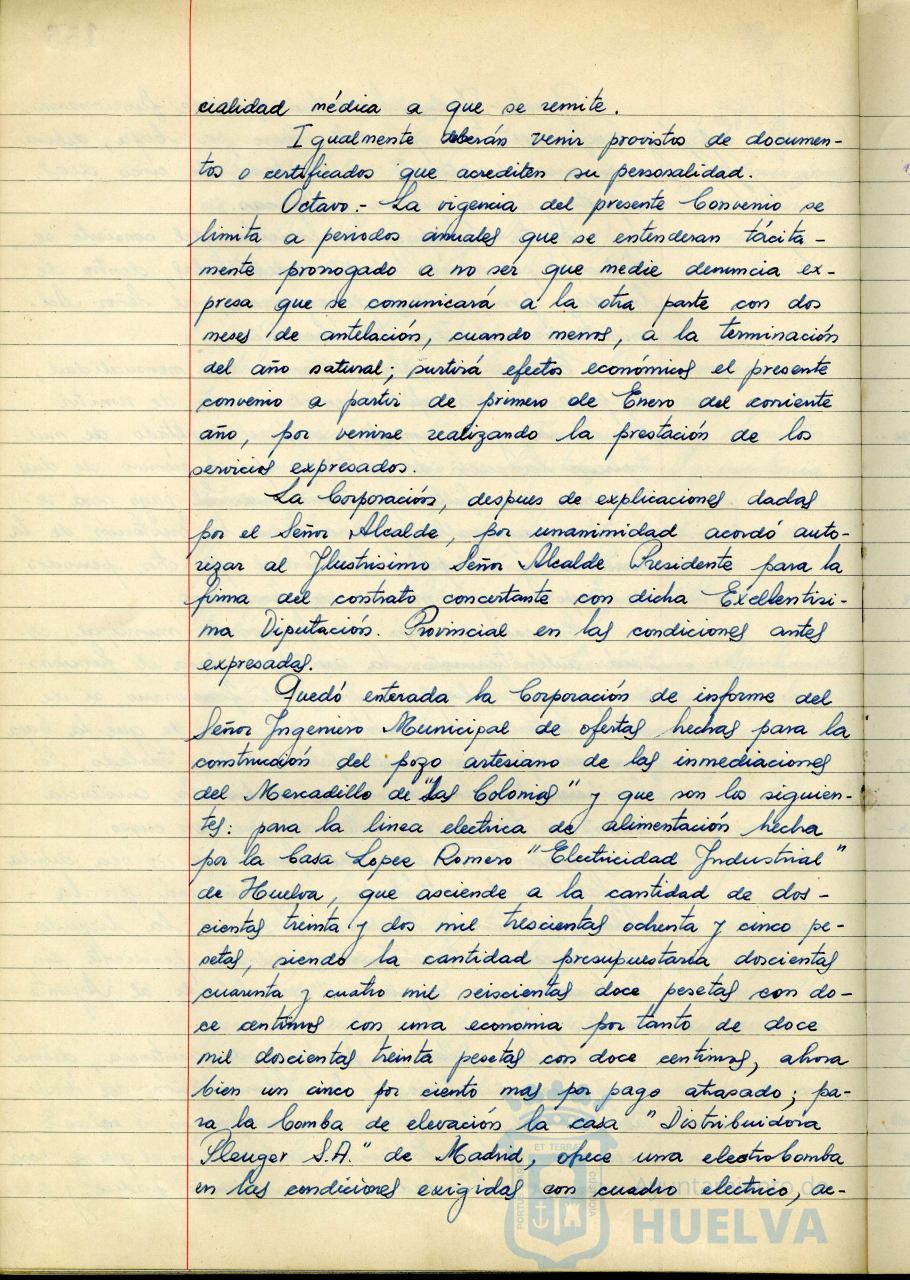 cialidad médica a que se remite.
Igualmente deberán venir provistos de documen-
tos o certificados que acrediten su personalidad.
Octavo.- La vigencia del presente Convenio se
limita a periodos anuales que se entenderan tácita-
mente prorrogado a no ser que medie denuncia ex-
presa que se comunicará a la otra parte con dos
meses de antelación, cuando menos, a la terminación
del año natural; surtirá efectos económicos el presente
convenio a partir de primero de Enero del corriente
año, por venirse realizando la prestación de los
servicios expresados.
La Corporación, despues de explicaciones dadas
por el Señor Alcalde, por unanimidad acordó auto-
rizar al Ilustrisimo Señor Alcalde Presidente para la
firma del contrato concertante con dicha Excellentisi-
ma Diputación. Provincial en las condiciones antes
expresadas.
Quedó enterada la Corporación de informe del
Señor Ingeniero Municipal de ofertas hechas para la
construcción del pozo artesiano de las inmediaciones
del Mercadillo de "Las Colonias" y que son los siguien-
tes: para la linea electrica de alimentación hecha
por la Casa Lopez Romero "Electricidad Industrial"
de Huelva, que asciende a la cantidad de dos-
cientas treinta y dos mil trescientas ochenta y cinco pe-
setas, siendo la cantidad presupuestaria doscientas
cuarenta y cuatro mil seiscientas doce pesetas con do-
ce centimos con una economia por tanto de doce
mil doscientas treinta pesetas con doce centimos, ahora
bien un cinco por ciento mas por pago atrasado; pa-
ra la bomba de elevación la casa "Distribuidora
Pleuger S.A." de Madrid, ofrece una electrobomba
en las condiciones exigidas con cuadro electrico, ac-
Ayuntamiento de
HUELVA
ET TERRAE